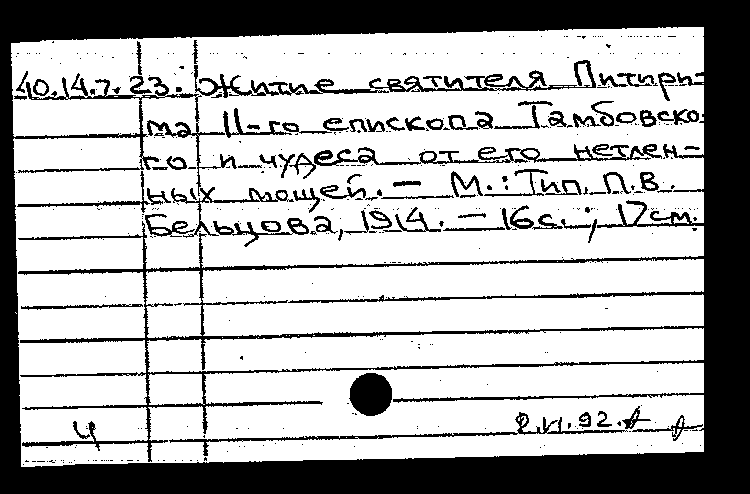 40.14.7.23. Житие святителя Питири-
ма II-го епископа Тамбовско-
го и чудеса от его нетлен-
ных мощей. — М.: Тип. П.В.
Бельцова, 1914. — 16с.; 17см.
Ч
2.VI.92.